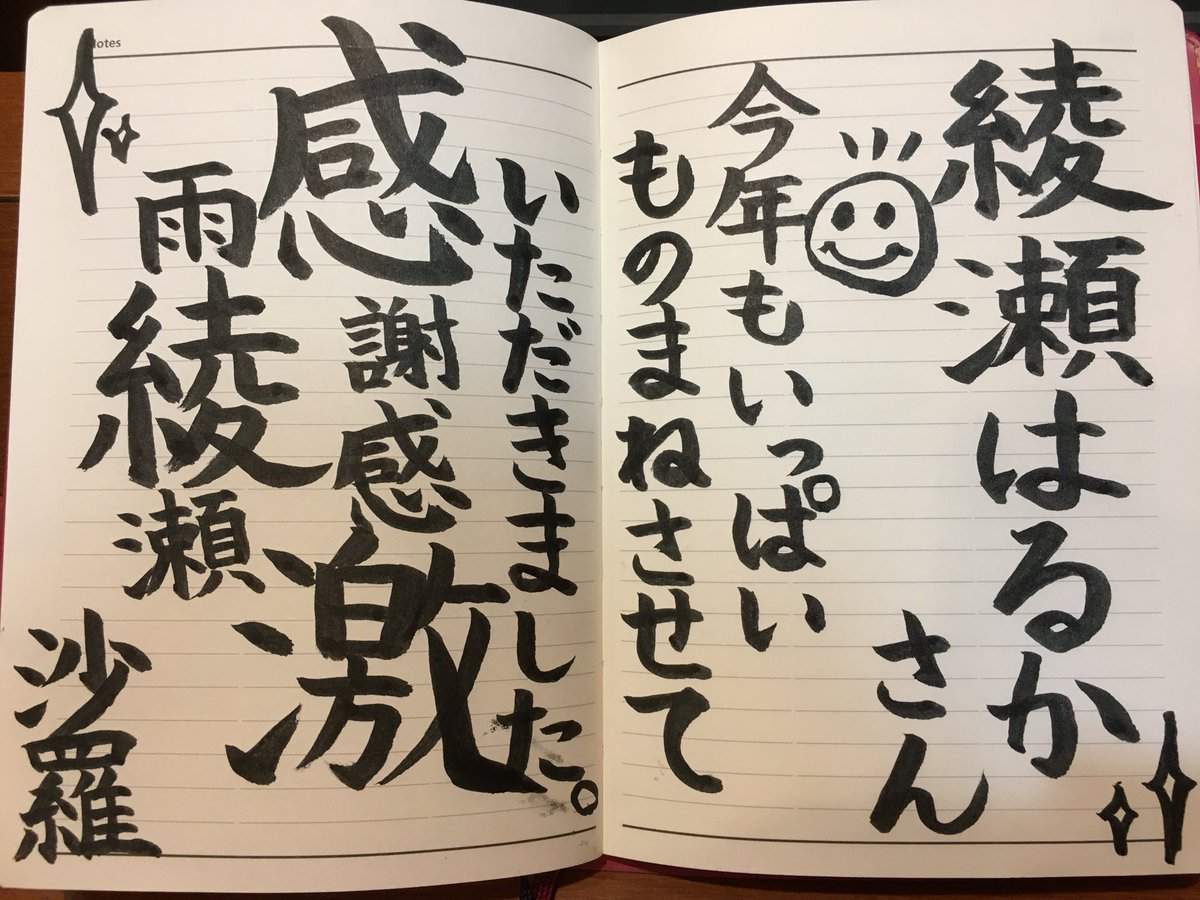 綾瀬はるか
さん
今年もいっぱい
ものまねさせて
いただきました。
感謝感激
雨綾瀬
沙羅
Notes